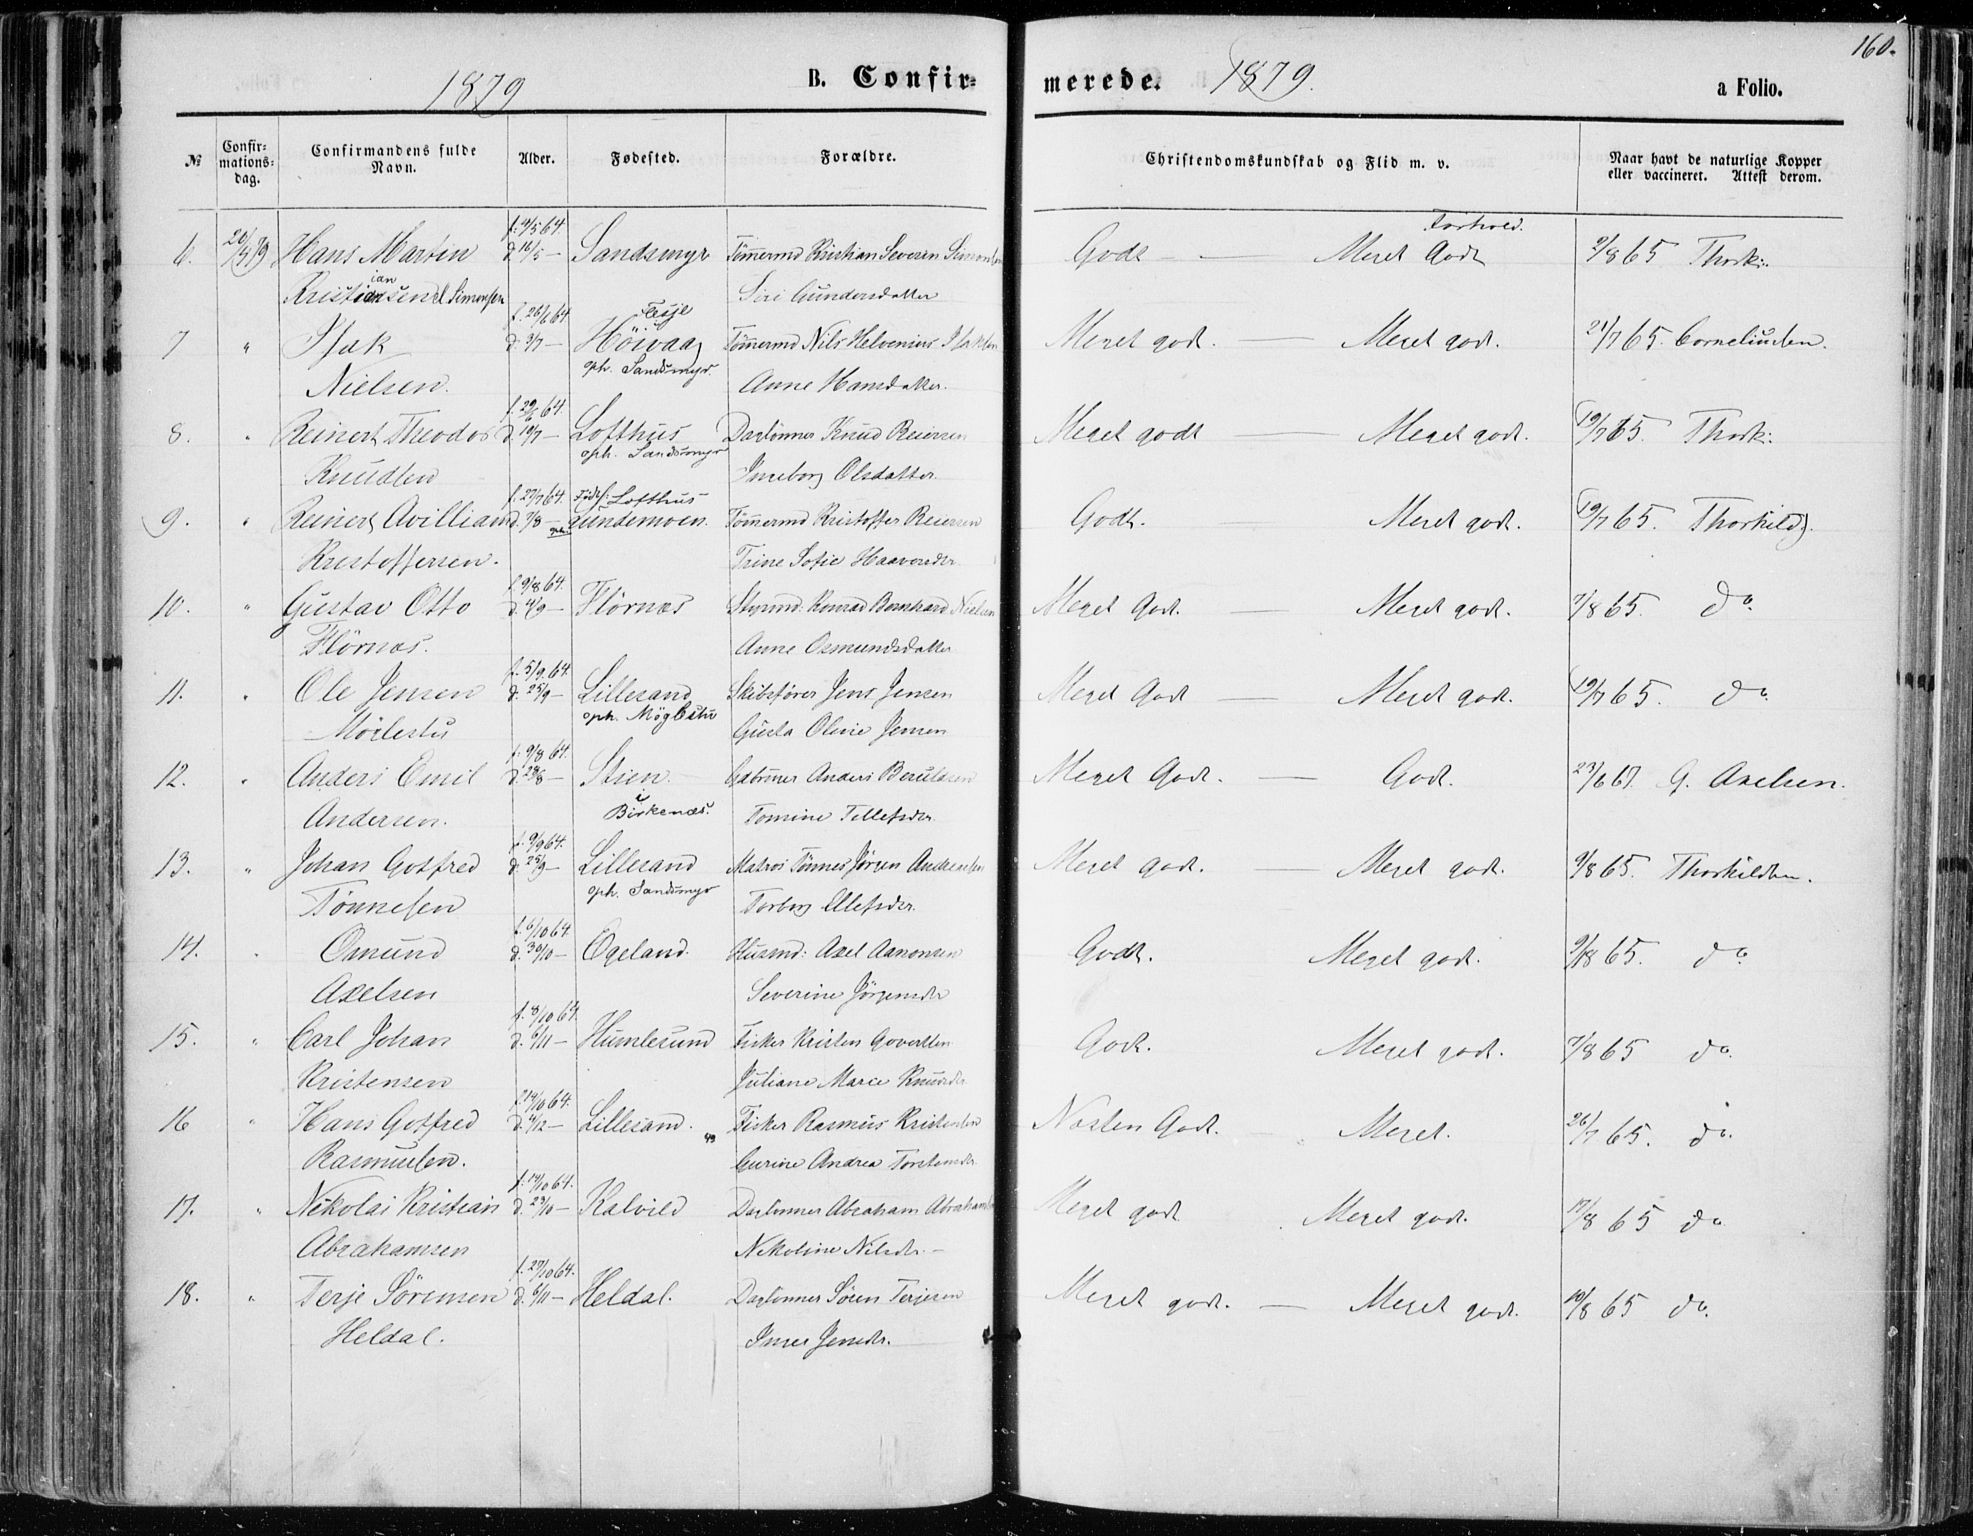 160.
1879 B. Confir= merede. 1879. a Folio.
№ Confir=mations=dag. Confirmandens fulde Navn. Alder. Fødested. Forældre. Christendomskundskab og Flid m. v. Naar havt de naturlige Kopper eller vaccineret. Attest derom.
Forhold.
f. 4/5 64.
6. Hans Martin d. 16/5 — Sandsmyr Tømermd Kristian Severin Simonsen Godt — Meget Godt 2/8 65 Thork:
Siri Gundersdatter
f. 26/6 64.
7 " Isak d. 3/7 — Høivaag Tømermd Nils Helvenius Isaksen Meget godt. — Meget godt. 21/7 65. Corneliussen.
oph. Sandsmyr.
Nielsen. Anne Hansdatter.
f. 29/6 64.
8. " Reinert Theodor d. 10/7 — Lofthus Daglønner Knud Reiersen Meget godt — Meget godt. 19/7 65. Thork:
oph. Sandsmyr
Knudsen Ingeborg Olsdatter
f. 27/7 64. Født: Lofthus
9. " Reinert Avillian d. 7/8 — Lundemoen. Tømermd Kristoffer Reiersen Godt. Meget godt. 19/7 65. Thorkilds.
Kristoffersen. Trine Sofie Haavorsdtr
f. 9/8 64.
10. " Gustav Otto d. 4/9 — Flørnæs Styrmd: Konrad Bernhard Nielsen Meget Godt. — Meget godt. 7/8 65. do.
Flørnæs. Anne Osmundsdatter
f. 5/9 64.
11. " Ole Jensen d. 25/9 — Lillesand Skibsfører Jens Jensen Meget Godt — Meget godt. 19/7 65. do.
oph. Møglestu
Møglestu Gusta Oline Jensen
f. 9/8 64.
12. " Anders Emil d. 28/8 — Stien. Gdbruger Anders Berulsen Meget Godt. — Godt. 23/6 67. G. Axelsen.
i Birkenæs.
Andersen. Tomine Tellefsdtr.
f. 9/9 64.
13. " Johan Gotfred d. 25/9 — Lillesand Matros Tønnes Jørgen Andreassen Meget godt. — Meget godt. 9/8 65. Thorkildsen.
oph. Sandsmyr
Tønnesen Torborg Ellefsdtr.
f. 6/10 64.
14. " Osmund d. 30/10 — Øgeland. Husmd: Axel Aanonsen Godt. Meget godt. 9/8 65. do.
Axelsen Severine Jørgensdtr
f. 8/10 64.
15. " Carl Johan d. 6/11 — Humlesund Fisker Kristen Govertsen Godt. Meget godt. 7/8 65 do.
Kristensen Juliane Marce Knudsdtr
f. 14/10 64.
16 " Hans Gotfred d. 4/12 — Lillesand. Fisker Rasmus Kristensen Næsten Godt. Meget. 26/7 65. do.
Rasmussen. Gurine Andrea Torstensdtr.
f. 14/10 64.
17. " Nikolai Kristian d. 23/10 — Kalvild Daglønner Abraham Abrahamsen Meget godt Meget godt. 17/8 65 do
Abrahamsen Nikoline Nilsdtr. —
f. 27/10 64.
18. " Terje Sørensen d. 6/11 — Heldal. Daglønner Søren Terjesen Meget godt. — Meget godt. 10/8 65 do.
Heldal. Inger Jensdtr.